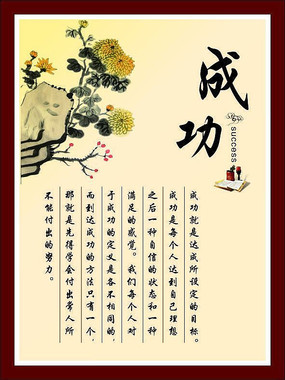 成功
success
成功就是达成所设定的目标。
成功是每个人达到自己理想
之后一种自信的状态和一种
满足的感觉。我们每个人对
于成功的定义是各不相同的，
而到达成功的方法只有一个，
那就是先得学会付出常人所
不能付出的努力。